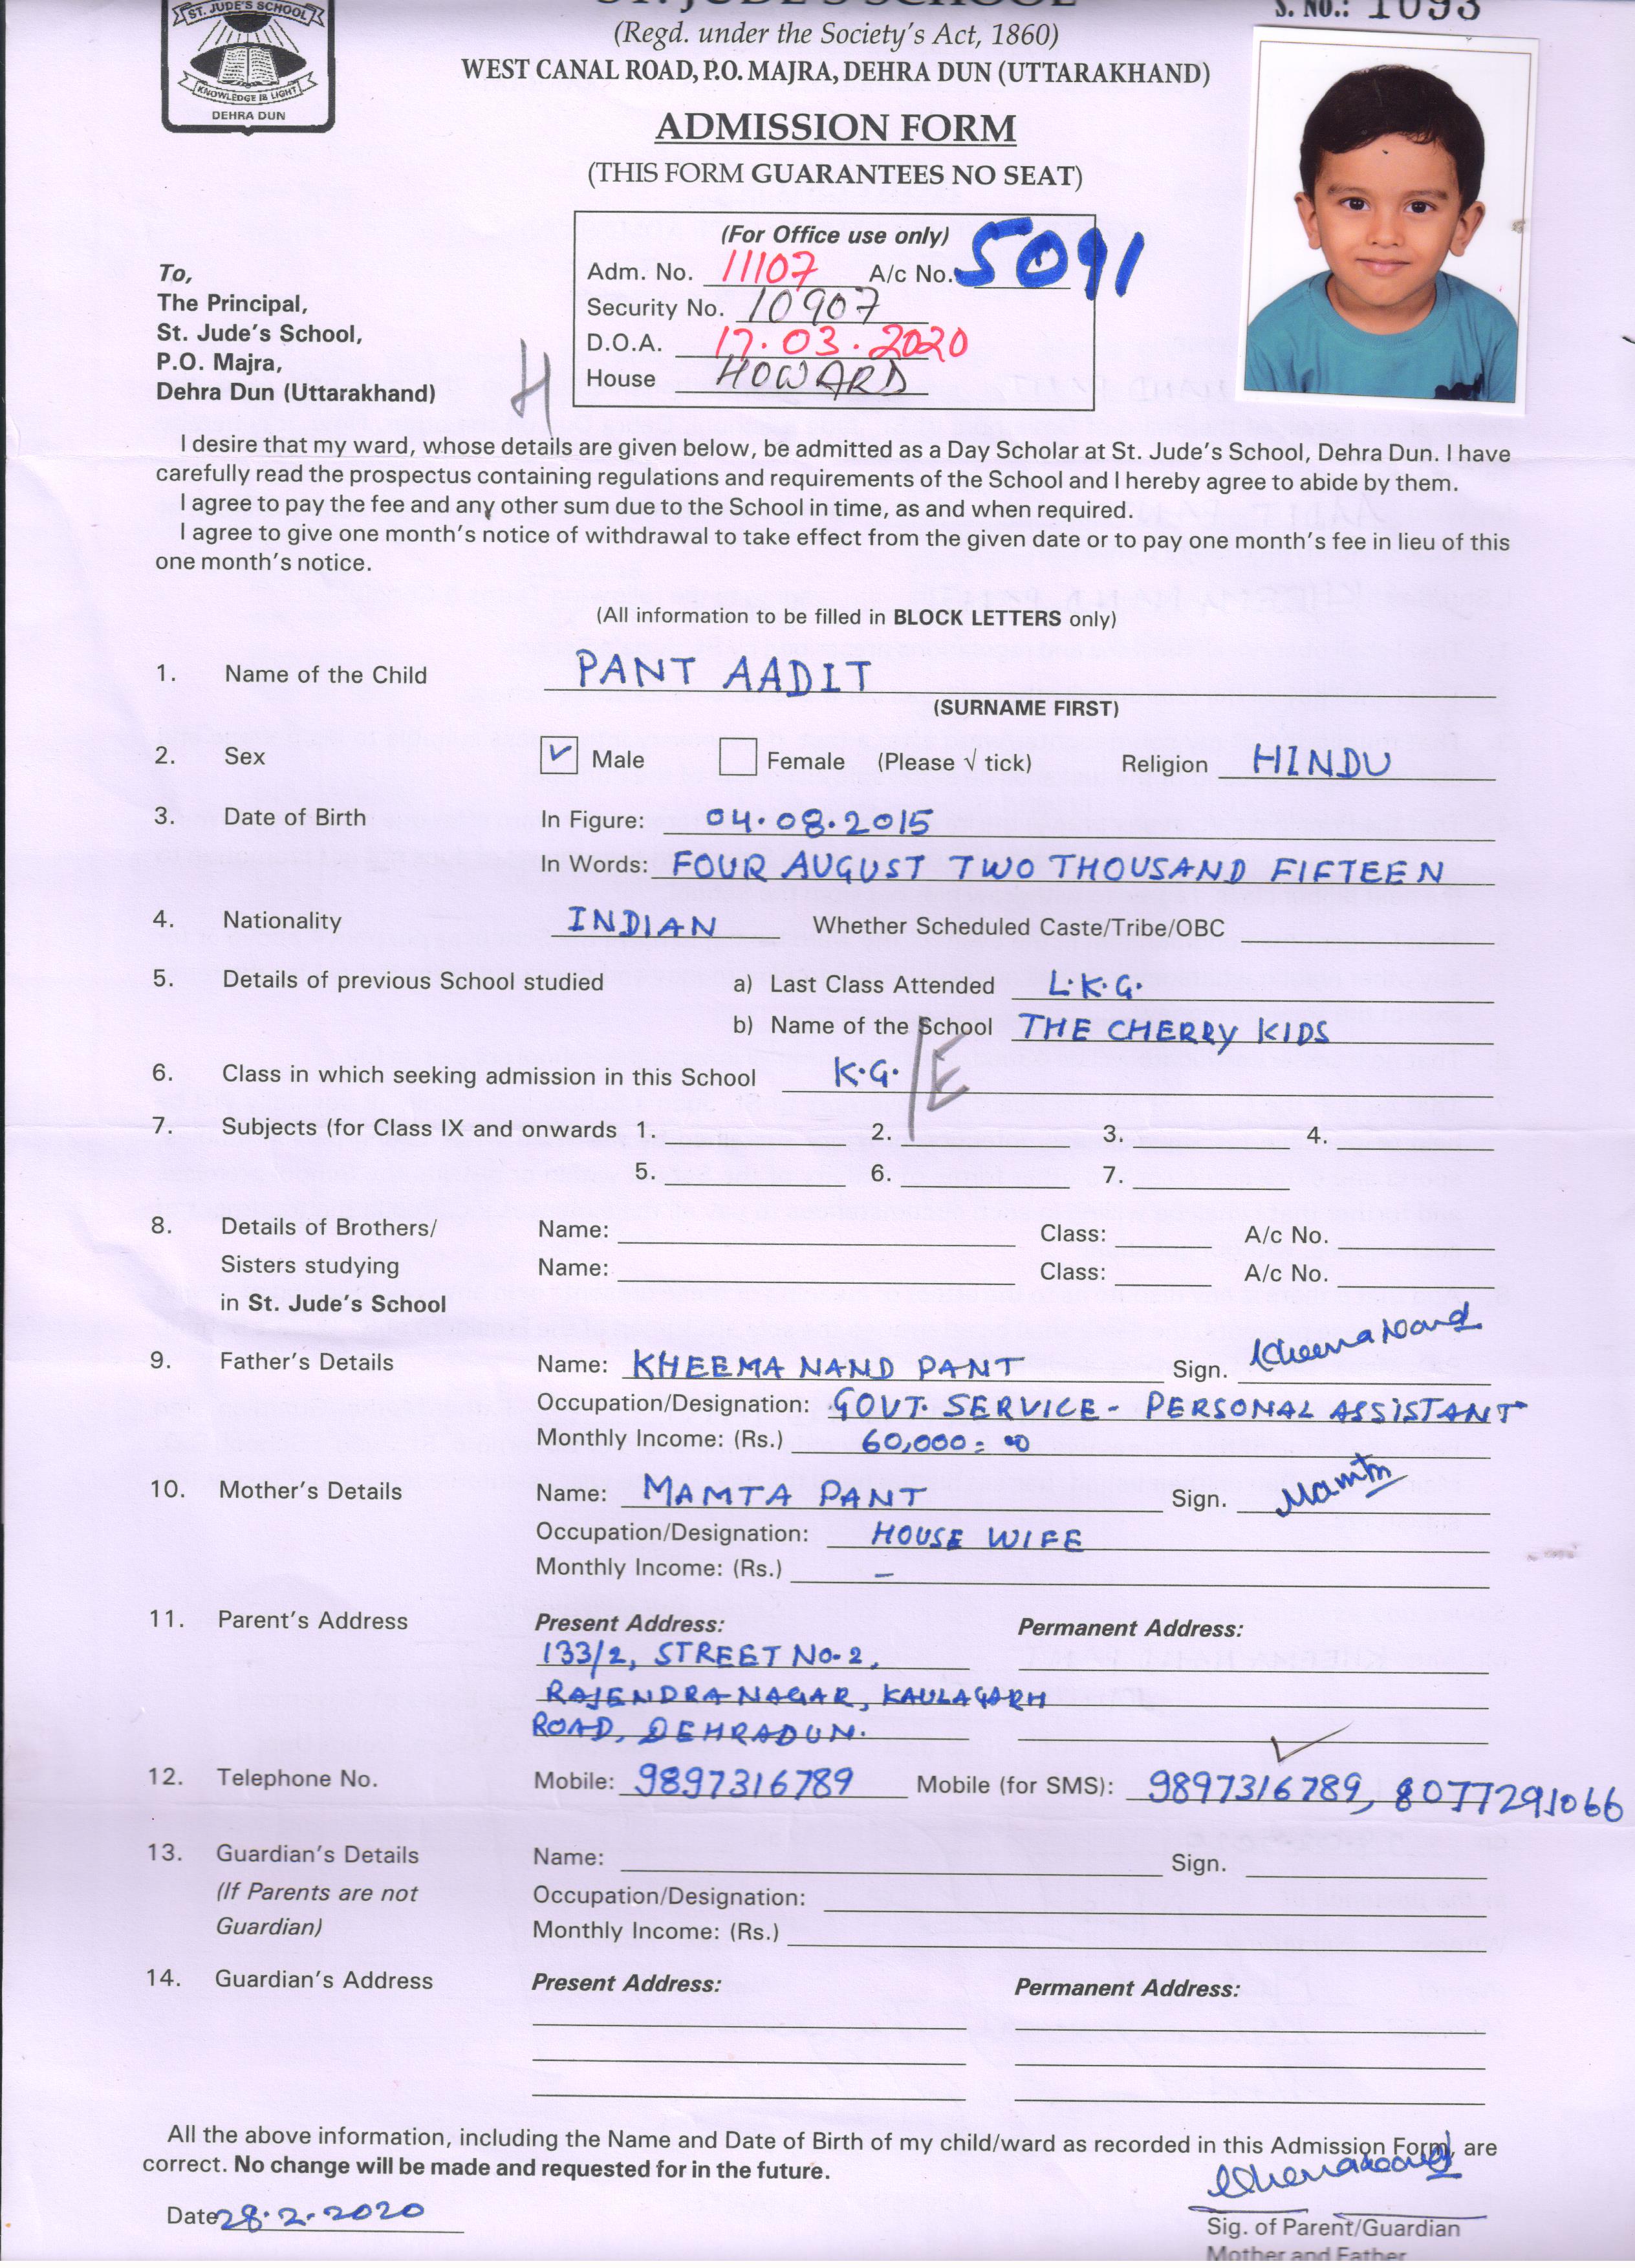 ST. JUDE'S SCHOOL
KNOWLEDGE IS LIGHT
DEHRA DUN
ST. JUDE'S SCHOOL
S. NO.: 1093
(Regd. under the Society's Act, 1860)
WEST CANAL ROAD, P.O. MAJRA, DEHRA DUN (UTTARAKHAND)
ADMISSION FORM
(THIS FORM GUARANTEES NO SEAT)
(For Office use only)
Adm. No. 11107 A/c No. 5091
Security No. 10907
D.O.A. 17.03.2020
House HOWARD
H
To,
The Principal,
St. Jude's School,
P.O. Majra,
Dehra Dun (Uttarakhand)
I desire that my ward, whose details are given below, be admitted as a Day Scholar at St. Jude's School, Dehra Dun. I have
carefully read the prospectus containing regulations and requirements of the School and I hereby agree to abide by them.
I agree to pay the fee and any other sum due to the School in time, as and when required.
I agree to give one month's notice of withdrawal to take effect from the given date or to pay one month's fee in lieu of this
one month's notice.
(All information to be filled in BLOCK LETTERS only)
1. Name of the Child PANT AADIT
(SURNAME FIRST)
2. Sex Male Female (Please √ tick) Religion HINDU
3. Date of Birth In Figure: 04.08.2015
In Words: FOUR AUGUST TWO THOUSAND FIFTEEN
4. Nationality INDIAN Whether Scheduled Caste/Tribe/OBC
5. Details of previous School studied a) Last Class Attended L.K.G.
b) Name of the School THE CHERRY KIDS
6. Class in which seeking admission in this School K.G./E
7. Subjects (for Class IX and onwards 1. 2. 3. 4.
5. 6. 7.
8. Details of Brothers/ Name: Class: A/c No.
Sisters studying Name: Class: A/c No.
in St. Jude's School
9. Father's Details Name: KHEEMA NAND PANT Sign. Kheema Nand
Occupation/Designation: GOVT. SERVICE - PERSONAL ASSISTANT
Monthly Income: (Rs.) 60,000=00
10. Mother's Details Name: MAMTA PANT Sign. Mamta
Occupation/Designation: HOUSE WIFE
Monthly Income: (Rs.) –
11. Parent's Address Present Address: Permanent Address:
133/2, STREET NO-2,
RAJENDRA NAGAR, KAULAGARH
ROAD, DEHRADUN.
12. Telephone No. Mobile: 9897316789 Mobile (for SMS): 9897316789, 8077291066
13. Guardian's Details Name: Sign.
(If Parents are not Occupation/Designation:
Guardian) Monthly Income: (Rs.)
14. Guardian's Address Present Address: Permanent Address:
All the above information, including the Name and Date of Birth of my child/ward as recorded in this Admission Form, are
correct. No change will be made and requested for in the future.
Kheemanand
Date 28.2.2020
Sig. of Parent/Guardian
Mother and Father